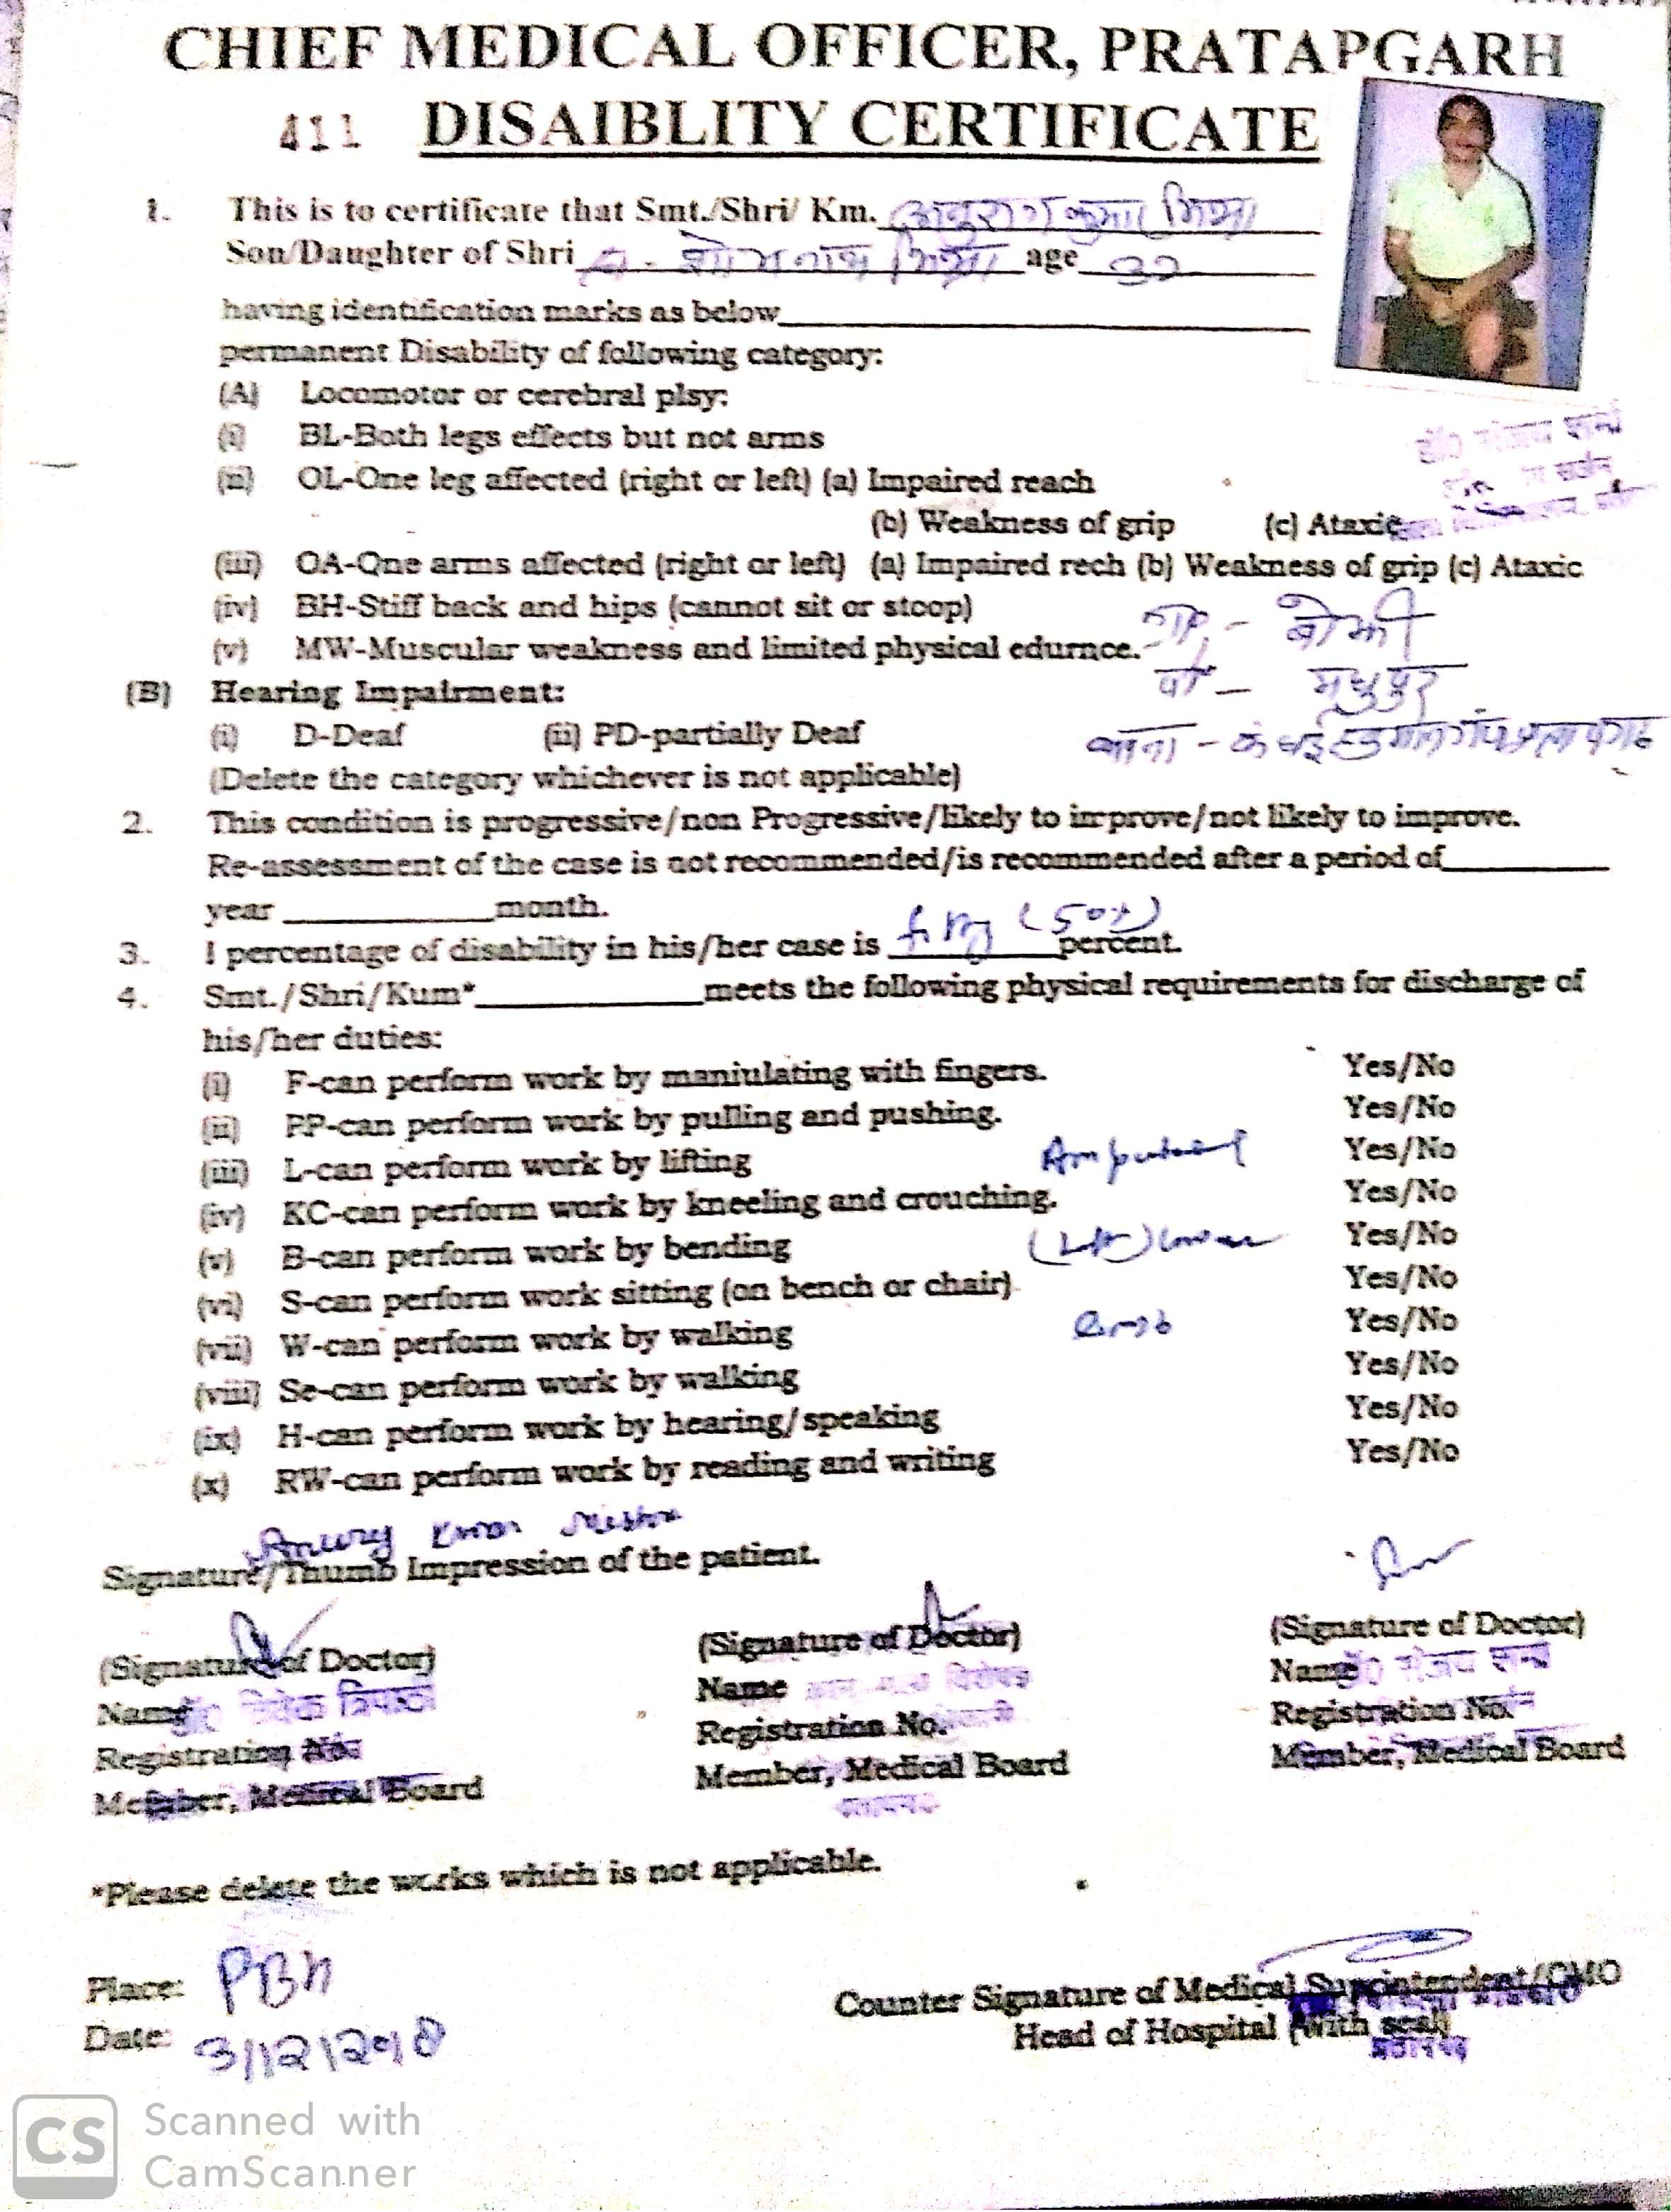 CHIEF MEDICAL OFFICER, PRATAPGARH
411 DISAIBLITY CERTIFICATE
1. This is to certificate that Smt./Shri/ Km. अनुराग कुमार मिश्रा
Son/Daughter of Shri मिश्रा age 32
having identification marks as below
permanent Disability of following category:
(A) Locomotor or cerebral plsy:
(i) BL-Both legs effects but not arms
(ii) OL-One leg affected (right or left) (a) Impaired reach
(b) Weakness of grip (c) Ataxic
(iii) OA-One arms affected (right or left) (a) Impaired rech (b) Weakness of grip (c) Ataxic
(iv) BH-Stiff back and hips (cannot sit or stoop)
(v) MW-Muscular weakness and limited physical edurnce.
पो - मधुपुर
थाना -
(B) Hearing Impairment:
(i) D-Deaf (ii) PD-partially Deaf
(Delete the category whichever is not applicable)
2. This condition is progressive/non Progressive/likely to improve/not likely to improve.
Re-assessment of the case is not recommended/is recommended after a period of
year month.
3. I percentage of disability in his/her case is fifty (50%) percent.
4. Smt./Shri/Kum* meets the following physical requirements for discharge of
his/her duties:
(i) F-can perform work by maniulating with fingers. Yes/No
(ii) PP-can perform work by pulling and pushing. Yes/No
(iii) L-can perform work by lifting Amputated Yes/No
(iv) KC-can perform work by kneeling and crouching. Yes/No
(v) B-can perform work by bending (Left) lower Yes/No
(vi) S-can perform work sitting (on bench or chair) Yes/No
(vii) W-can perform work by walking limb Yes/No
(viii) Se-can perform work by walking Yes/No
(ix) H-can perform work by hearing/speaking Yes/No
(x) RW-can perform work by reading and writing Yes/No
Anurag Kumar Mishra
Signature/Thumb Impression of the patient.
(Signature of Doctor) (Signature of Doctor) (Signature of Doctor)
Name डॉ० विवेक त्रिपाठी Name विशेषज्ञ Name डॉ०
Registration No. Registration No. Registration No.
Member, Medical Board Member, Medical Board Member, Medical Board
*Please delete the works which is not applicable.
Place: PBH
Date: 3/12/2018
Counter Signature of Medical Supointendent/CMO
Head of Hospital (with seal)
CS Scanned with
CamScanner